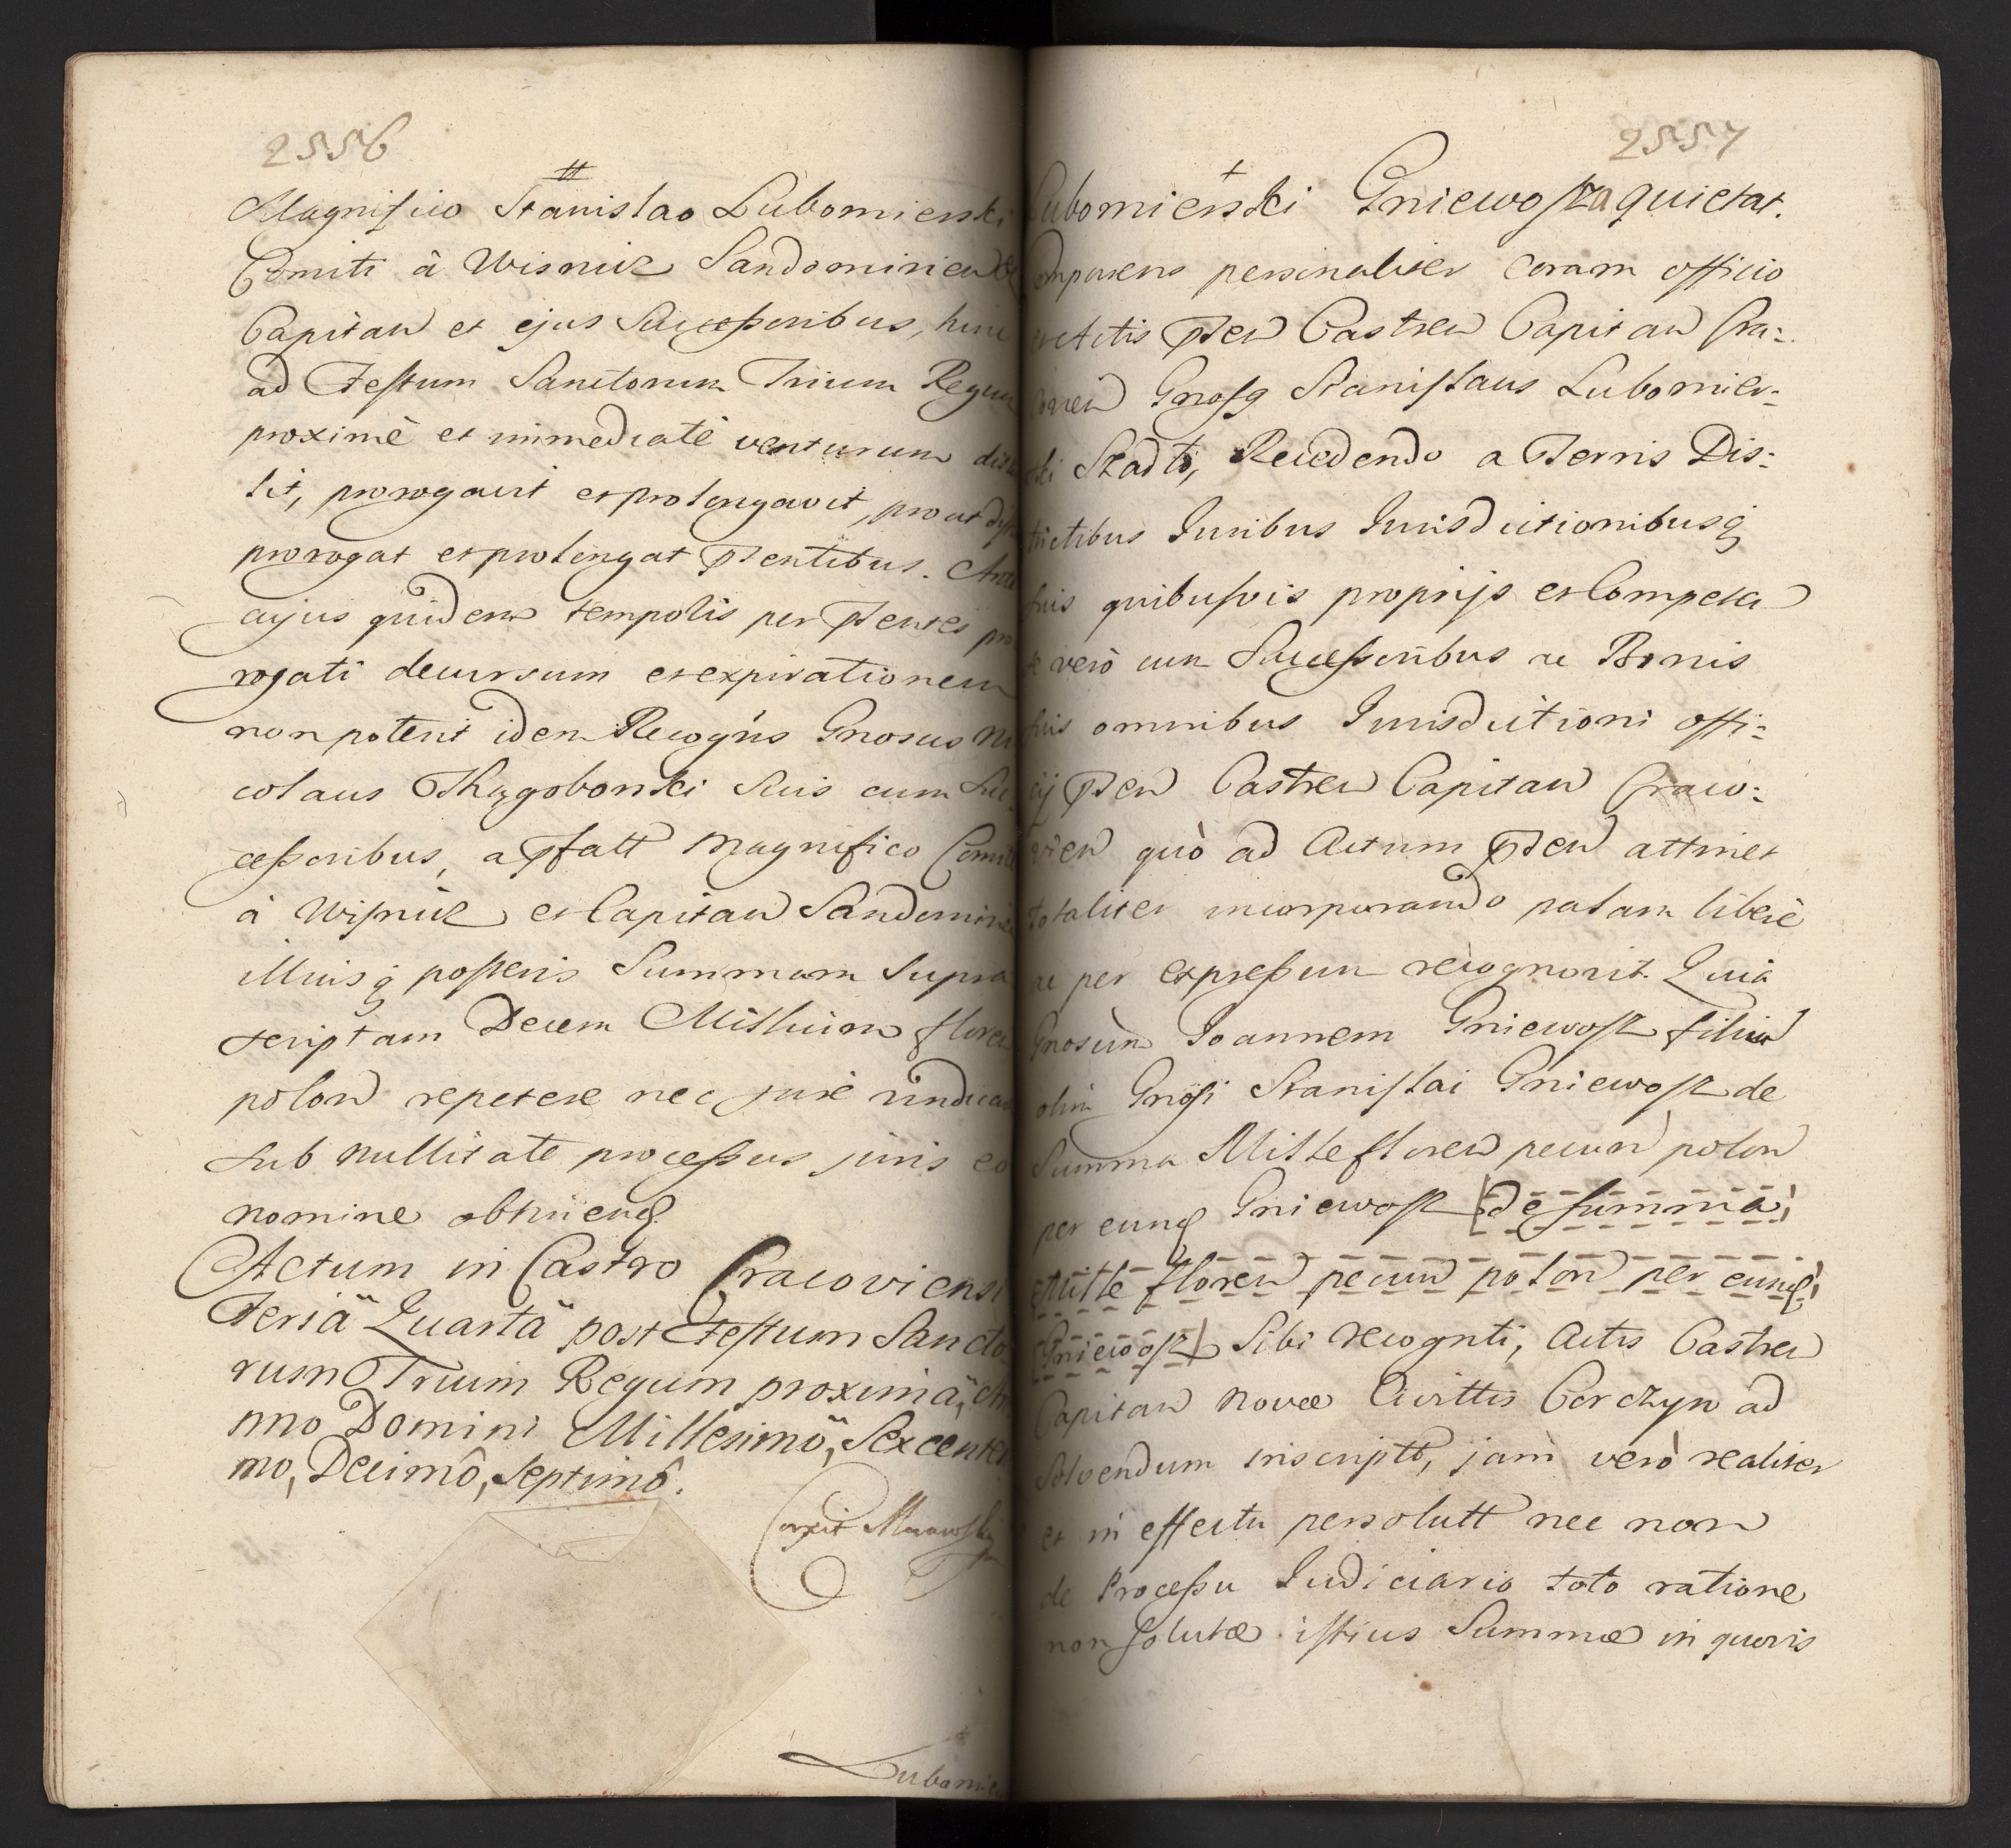 2556
Magnifico Stanislao Lubomierski
Comiti à Wisnicz Sandomirien
Capitan et ejus Successoribus, hinc
ad Festum Sanctorum Trium Regum
proximè et immediatè venturum
lit, prorogavit et prolongavit, prout
prorogat et prolongat pntentibus. Ante
cujus quidem temporis per pntentes pro
rogati decursum et expirationem
non poterit idem Recogns Gnosus Ni
colaus Rzągoborski Suis cum Suc
cessoribus, a pfatt Magnifico Comite
à Wisnicz et Capitan Sandomirien
illiusq posteris Summam Supra
scriptam Decem Millium floren
polon repetere nec jure vindicare
sub nullitate processus juris eo
nomine obtinend.
Actum in Castro Cracoviensi
Feriâ Quartâ post Festum Sancto
rum Trium Regum proximâ, An
nno Domini Millesimô, Sexcente
mo, Decimô, Septimô.
Corxit Morawski
Lubomie
2557
Lubomierski Gniewosza quietat.
Comparens personaliter coram officio
et Actis pnten Castren Capitan Cra:
covien Gnosq Stanislaus Lubomier:
ski Recedendo a Terris Dis:
trictibus Iuribus Iurisdictionibusq
suis quibusvis proprijs et Competen
se verò cum Successoribus ac Bonis
suis omnibus Iurisdictioni offi:
cij pnten Castren Capitan Craco:
vien quò ad Actum pnten attinet
totaliter incorporando palam liberè
ac per expressum recognovit. Quia
Gnosum Joannem Gniewosz filium
olim Gnosi Stanislai Gniewosz de
Summa Mille floren pecun polon
per eund Gniewosz [de summa
Mille floren pecun polon per eund
Gniewosz] Sibi recognti, Actis Castren
Capitan Novae Civittis Corczyn ad
Solvendum inscriptt, jam verò realiter
et in effectu persolutt nec non
de Processu Iudiciario toto ratione
non solutae istius Summae in quovis